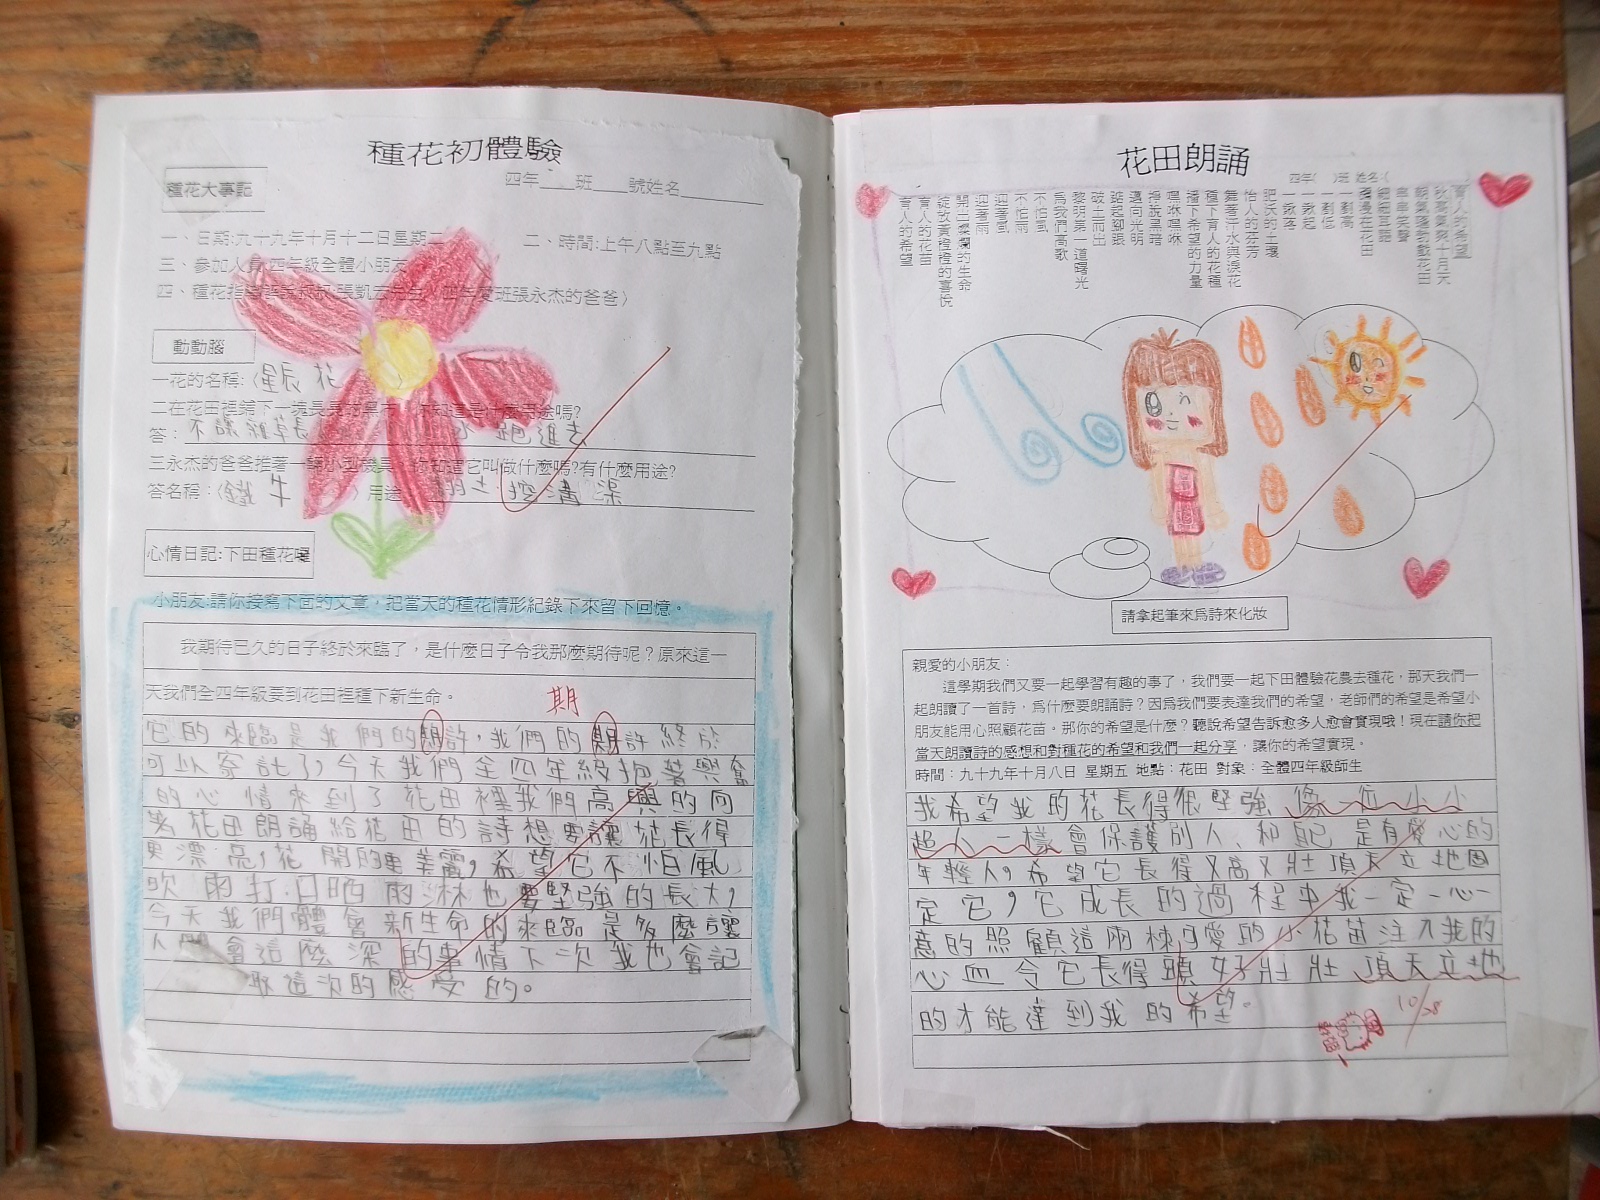 種花初體驗
四年 班 號姓名
種花大事記
一、日期:九十九年十月十二日星期二
二、時間:上午八點至九點
三、參加人員:四年級全體小朋友
四、種花指導 張凱 四年 班張永杰的爸爸)
動動腦
一花的名稱:(星辰花
二在花田裡鋪下一塊長長的黑 你知道是什麼用途嗎?
答: 不讓雜草長 水 跑進去
三永杰的爸爸推著一輛小型機具,你知道它叫做什麼嗎?有什麼用途?
答名稱:(鐵牛 ) 用途 翻土 挖溝渠
心情日記:下田種花囉
小朋友:請你接寫下面的文章,把當天的種花情形紀錄下來留下回憶。
我期待已久的日子終於來臨了,是什麼日子令我那麼期待呢?原來這一
天我們全四年級要到花田裡種下新生命。
期
它的來臨是我們的期許,我們的期許終於
可以寄託了,今天我們全四年級抱著興奮
的心情來到了花田裡我們高興的向
著花田朗誦給花田的詩想要讓花長得
更漂亮,花開的更美麗,希望它不怕風
吹雨打.日晒雨淋也要堅強的長大,
今天我們體會新生命的來臨是多麼讓
人 會這麼深的事情下次我也會記
取這次的感受的。
花田朗誦
四年( )班 姓名:(
育人的希望
秋高氣爽十月天
串串笑聲
漫漫在花田
一剷高
一剷低
一鍬起
一鍬落
肥沃的土壤
怡人的芬芳
舞著汗水與淚花
種下育人的花種
播下希望的力量
嘿咻嘿咻
掙脫黑暗
邁向光明
踮起腳跟
破土而出
黎明第一道曙光
為我們高歌
不怕風
不怕雨
迎著風
迎著雨
開出燦爛的生命
綻放黃橙橙的喜悅
育人的花苗
育人的希望
請拿起筆來為詩來化妝
親愛的小朋友:
這學期我們又要一起學習有趣的事了,我們要一起下田體驗花農去種花,那天我們一
起朗讀了一首詩,為什麼要朗誦詩?因為我們要表達我們的希望,老師們的希望是希望小
朋友能用心照顧花苗。那你的希望是什麼?聽說希望告訴愈多人愈會實現哦!現在請你把
當天朗讀詩的感想和對種花的希望和我們一起分享,讓你的希望實現。
時間:九十九年十月八日 星期五 地點:花田 對象:全體四年級師生
我希望我的花長得很堅強像一位小小
超人一樣會保護別人、和自己是有愛心的
年輕人,希望它長得又高又壯頂天立地固
定它,它成長的過程中我一定一心一
意的照顧這兩棟可愛的小花苗注入我的
心血令它長得頭好壯壯頂天立地
的才能達到我的希望。
10/28